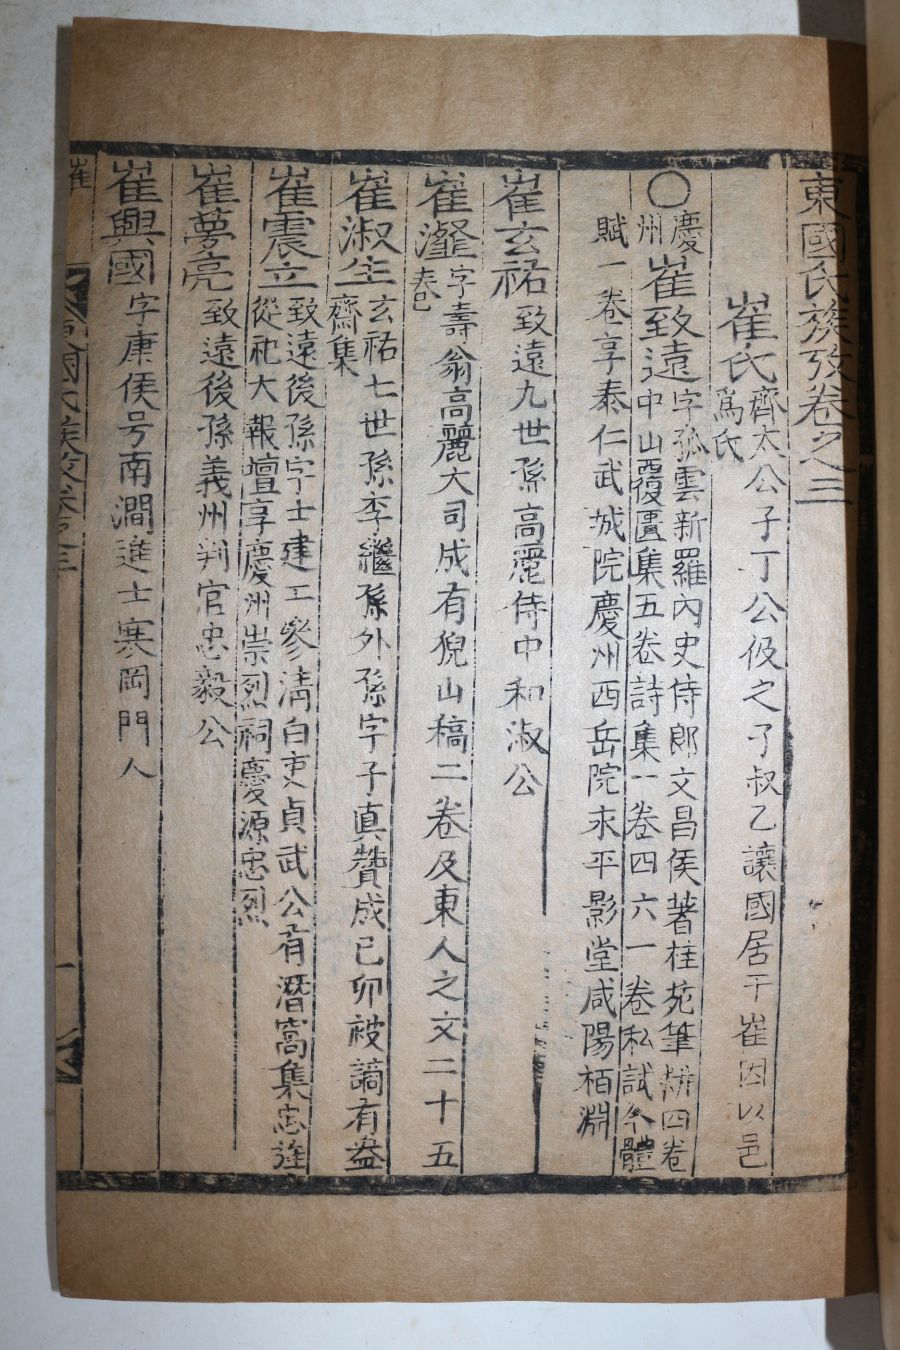 東國氏族攷卷之三
崔氏 齊太公子丁公伋之子叔乙讓國居于崔因以邑
爲氏
○慶州 崔致遠 字孤雲新羅內史侍郎文昌侯著桂苑筆耕四卷
中山覆匱集五卷詩集一卷四六一卷私試今體
賦一卷享泰仁武城院慶州西岳院永平影堂咸陽栢淵
崔玄祐 致遠九世孫高麗侍中和淑公
崔瀣 字壽翁高麗大司成有猊山稿二卷及東人之文二十五
卷
崔淑生 玄祐七世孫李繼孫外孫字子眞贊成已卯被謫有盎
齋集
崔震立 致遠後孫字士建工參淸白吏貞武公有潛窩集忠旌
從祀大報壇享慶州崇烈祠慶源忠烈
崔夢亮 致遠後孫義州判官忠毅公
崔興國 字康侯号南澗進士寒岡門人
崔
東國氏族攷卷之三
一